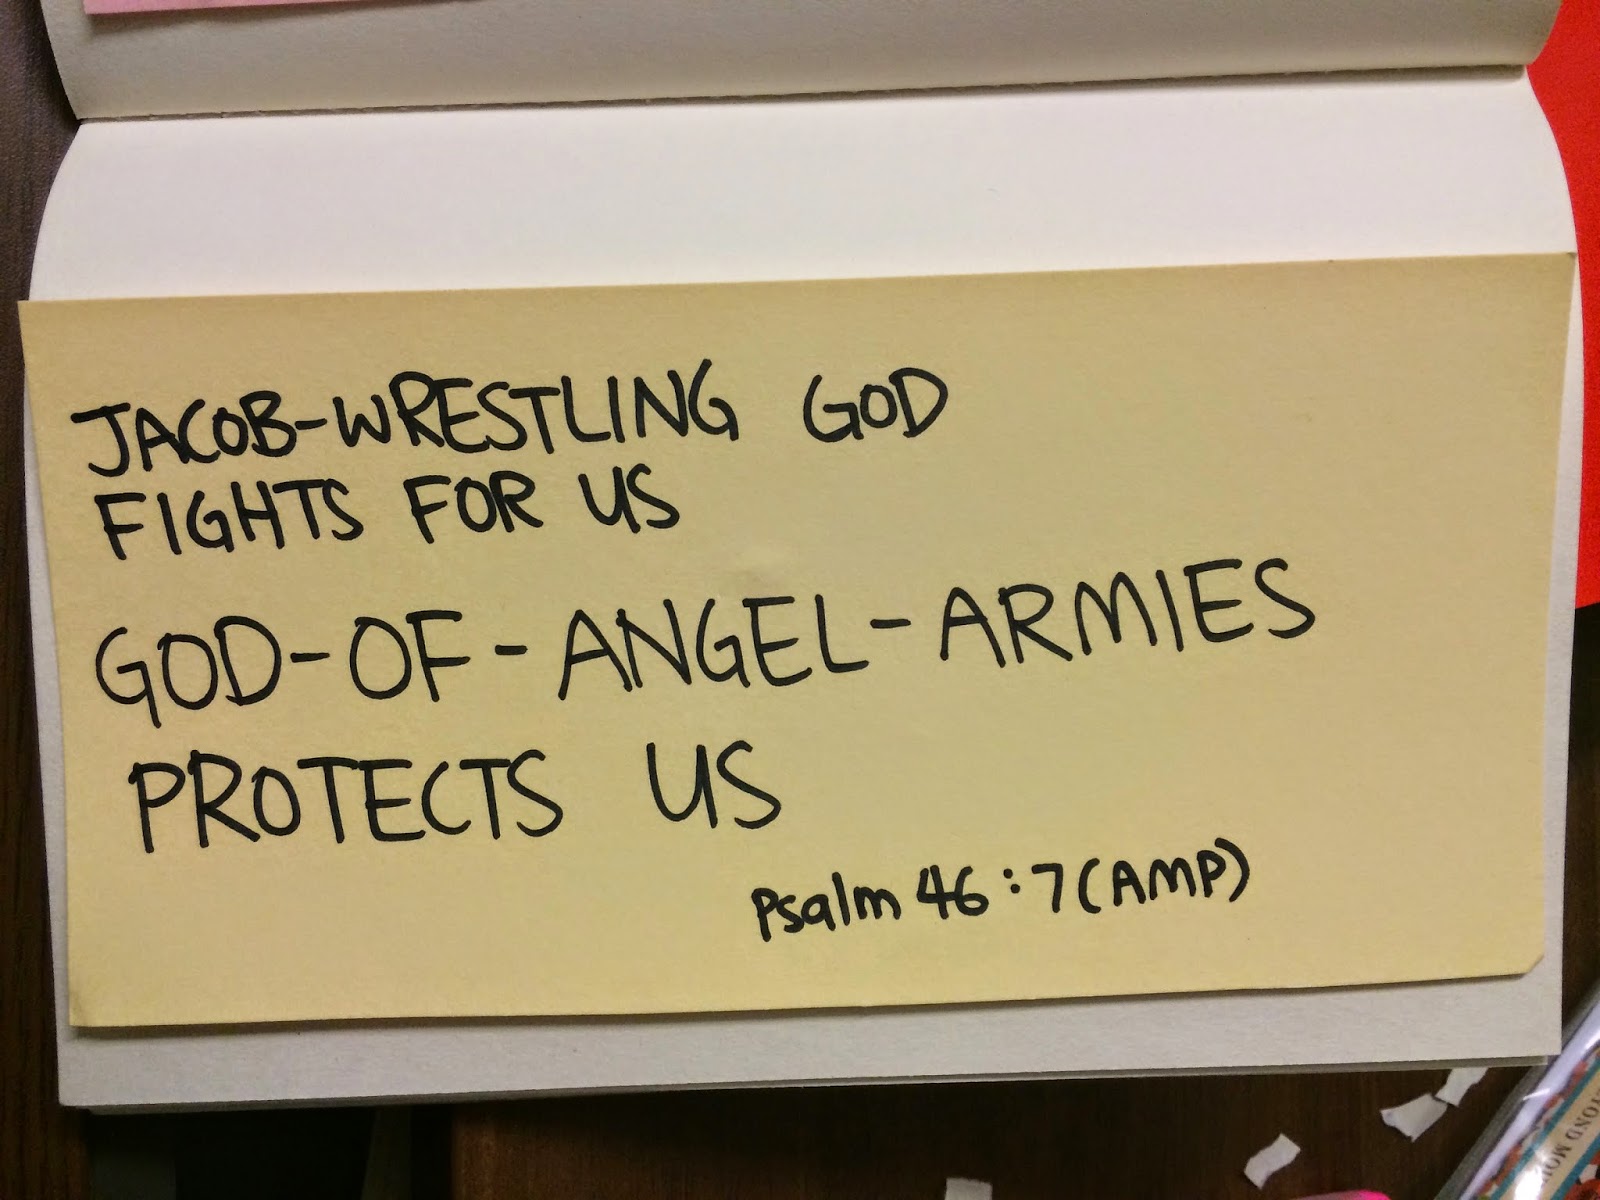 JACOB-WRESTLING GOD
FIGHTS FOR US
GOD-OF-ANGEL-ARMIES
PROTECTS US
Psalm 46:7(AMP)